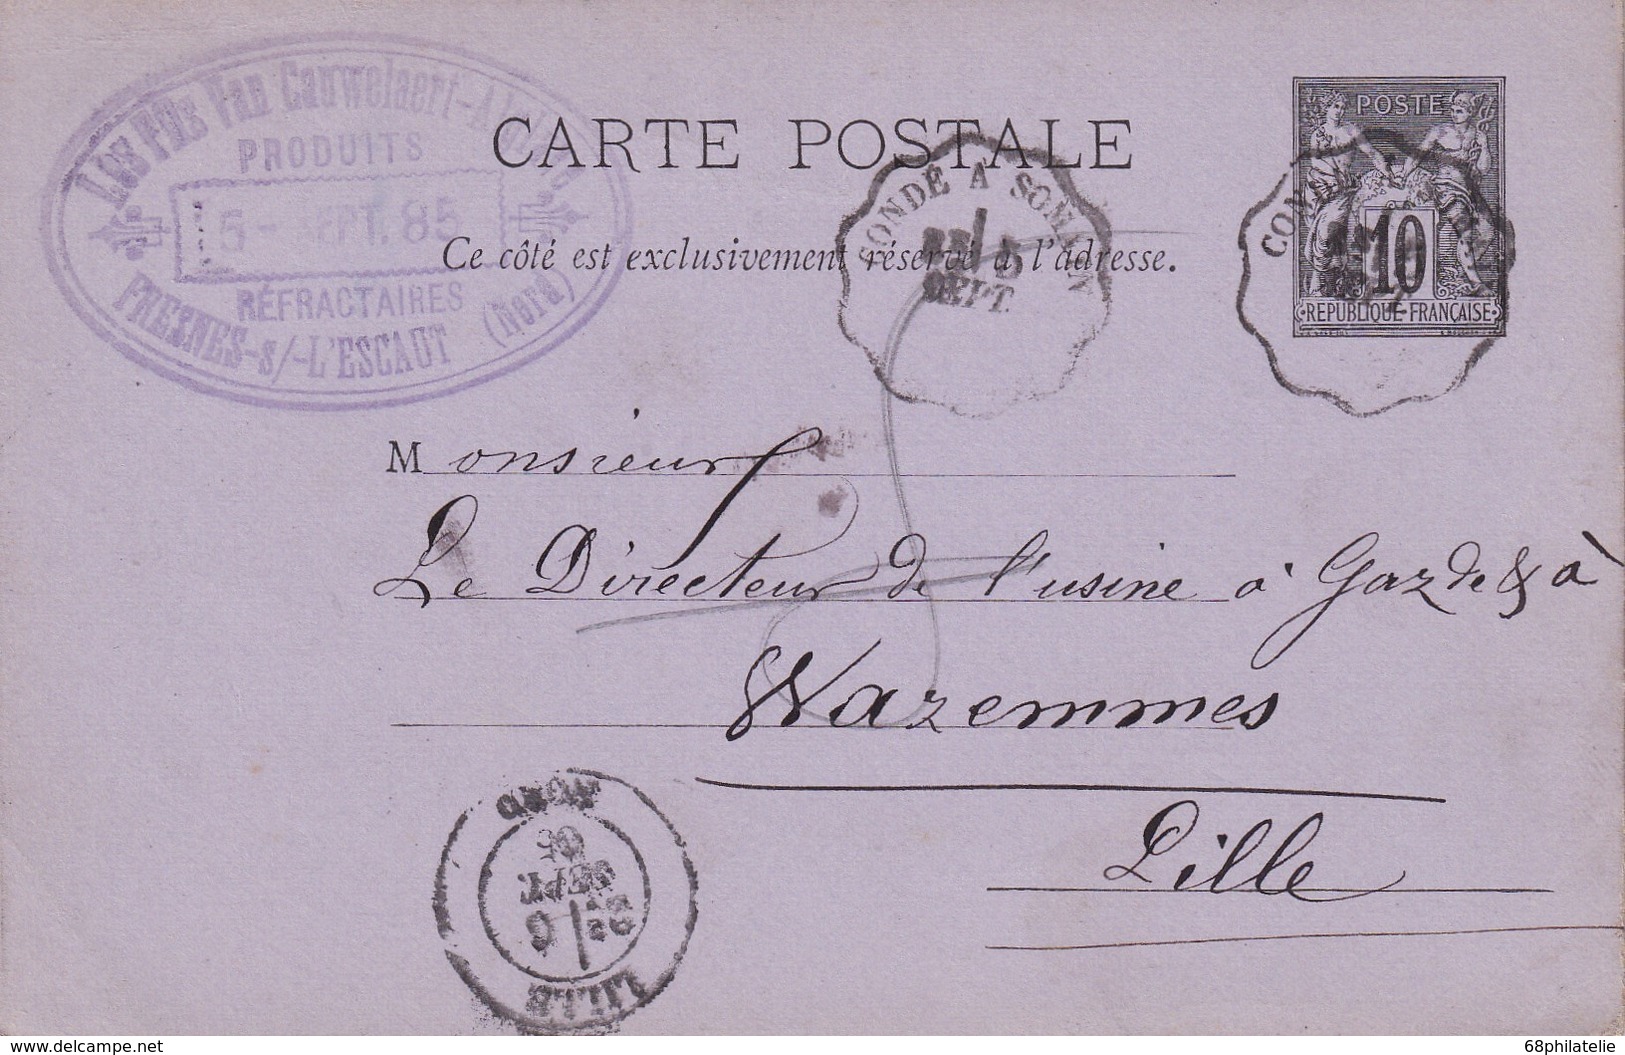 Les Fils Van Cauwelaert-
PRODUITS
5 - SEPT. 85
RÉFRACTAIRES
FRESNES-s/-L'ESCAUT (Nord)
CARTE POSTALE
Ce côté est exclusivement réservé à l'adresse.
CONDÉ A
5
SEPT.
POSTE
10
REPUBLIQUE FRANÇAISE
Monsieur
Le Directeur de l'usine à Gaz de & à
Wazemmes
Lille
LILLE
6
SEPT.
85
NORD
www.delcampe.net
68philatelie